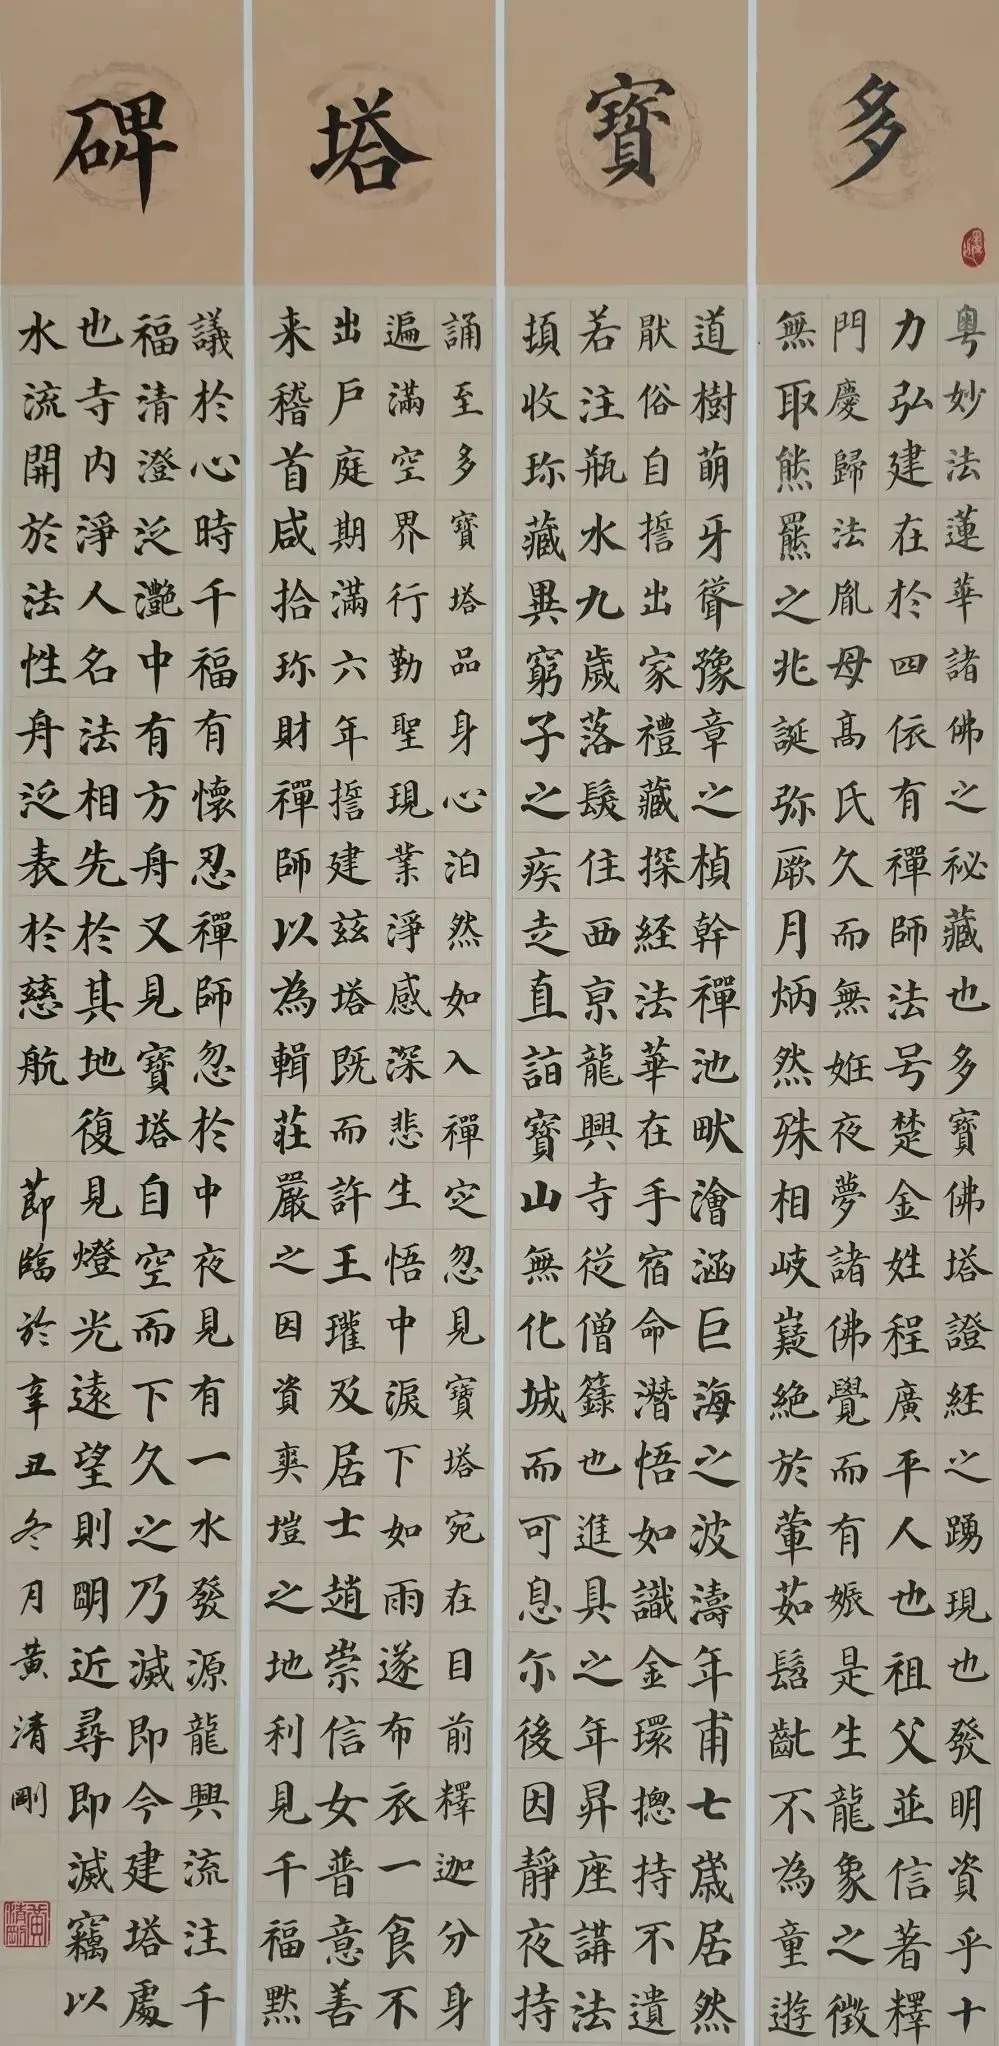 多寶塔碑
粤妙法蓮華諸佛之祕藏也多寶佛塔證経之踴現也發明資乎十
力弘建在於四依有禪師法号楚金姓程廣平人也祖父並信著釋
門慶歸法胤母高氏久而無姙夜夢諸佛覺而有娠是生龍象之徵
無取熊羆之兆誕弥厥月炳然殊相岐嶷絶於葷茹髫齓不為童遊
道樹萌牙聳豫章之楨幹禪池畎澮涵巨海之波濤年甫七歳居然
猒俗自誓出家禮藏探経法華在手宿命潛悟如識金環摠持不遺
若注瓶水九歲落髮住西京龍興寺從僧籙也進具之年昇座講法
頓收珎藏異窮子之疾走直詣寶山無化城而可息尓後因靜夜持
誦至多寶塔品身心泊然如入禪定忽見寶塔宛在目前釋迦分身
遍滿空界行勤聖現業淨感深悲生悟中淚下如雨遂布衣一食不
出戶庭期滿六年誓建茲塔既而許王瓘及居士趙崇信女普意善
来稽首咸捨珎財禪師以為輯莊嚴之因資爽塏之地利見千福黙
議於心時千福有懷忍禪師忽於中夜見有一水發源龍興流注千
福清澄泛灧中有方舟又見寶塔自空而下久之乃滅即今建塔處
也寺内淨人名法相先於其地復見燈光遠望則明近尋即滅竊以
水流開於法性舟泛表於慈航
節臨於辛丑冬月黄清剛